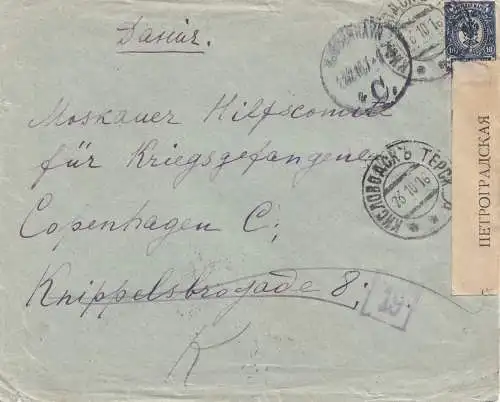 Данія.
Moskauer Hilfscomité
für Kriegsgefangene
Copenhagen C;
Knippelsbrogade 8;
K
C.
КИСЛОВОДСКЪ ТЕРСК. О
26 10 16
10 10
ПЕТРОГРАДСКАЯ
19